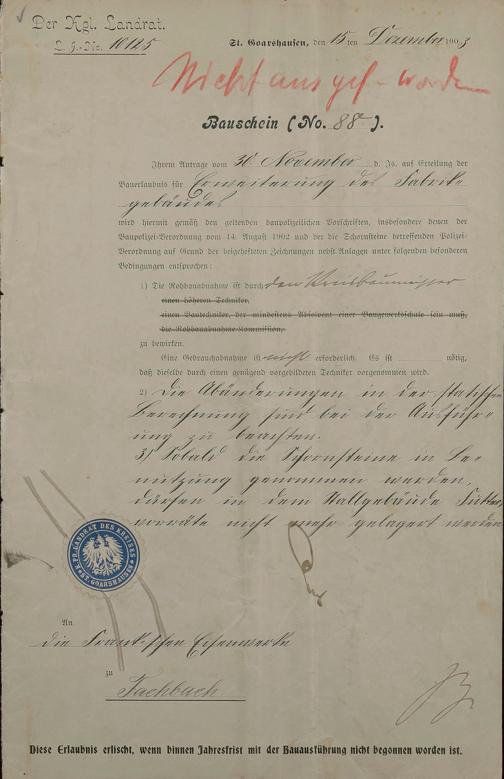 Der Kgl. Landrat.
L. J.-No. 10125
St. Goarshausen, den 15ten Dezember 1903
Nicht ausgef. worden
Bauschein (No. 88a).
Ihrem Antrage vom 30 November d. Js. auf Erteilung der
Bauerlaubnis für Erweiterung des Fabrik-
gebäudes
wird hiermit gemäß den geltenden baupolizeilichen Vorschriften, insbesondere denen der
Baupolizei-Verordnung vom 14. August 1902 und der die Schornsteine betreffenden Polizei-
Verordnung auf Grund der beigehefteten Zeichnungen nebst Anlagen unter folgenden besonderen
Bedingungen entsprochen:
1) Die Rohbauabnahme ist durch den Kreisbaumeister
einen höheren Techniker,
einen Bautechniker, der mindestens Absolvent einer Baugewerkschule sein muß,
die Rohbauabnahme-Kommission,
zu bewirken.
Eine Gebrauchabnahme ist nicht erforderlich. Es ist nötig,
daß dieselbe durch einen genügend vorgebildeten Techniker vorgenommen wird.
2) Die Abänderungen in der statischen
Berechnung sind bei der Ausführ-
ung zu beachten.
3) Sobald die Schornsteine in Be-
nutzung genommen werden,
dürfen in dem Stallgebäude Futter-
vorräte nicht mehr gelagert werden
K. PR. LANDRAT DES KREISES
ST. GOARSHAUSEN
An
die Frank'schen Eisenwerke
zu
Fachbach
Diese Erlaubnis erlischt, wenn binnen Jahresfrist mit der Bauausführung nicht begonnen worden ist.